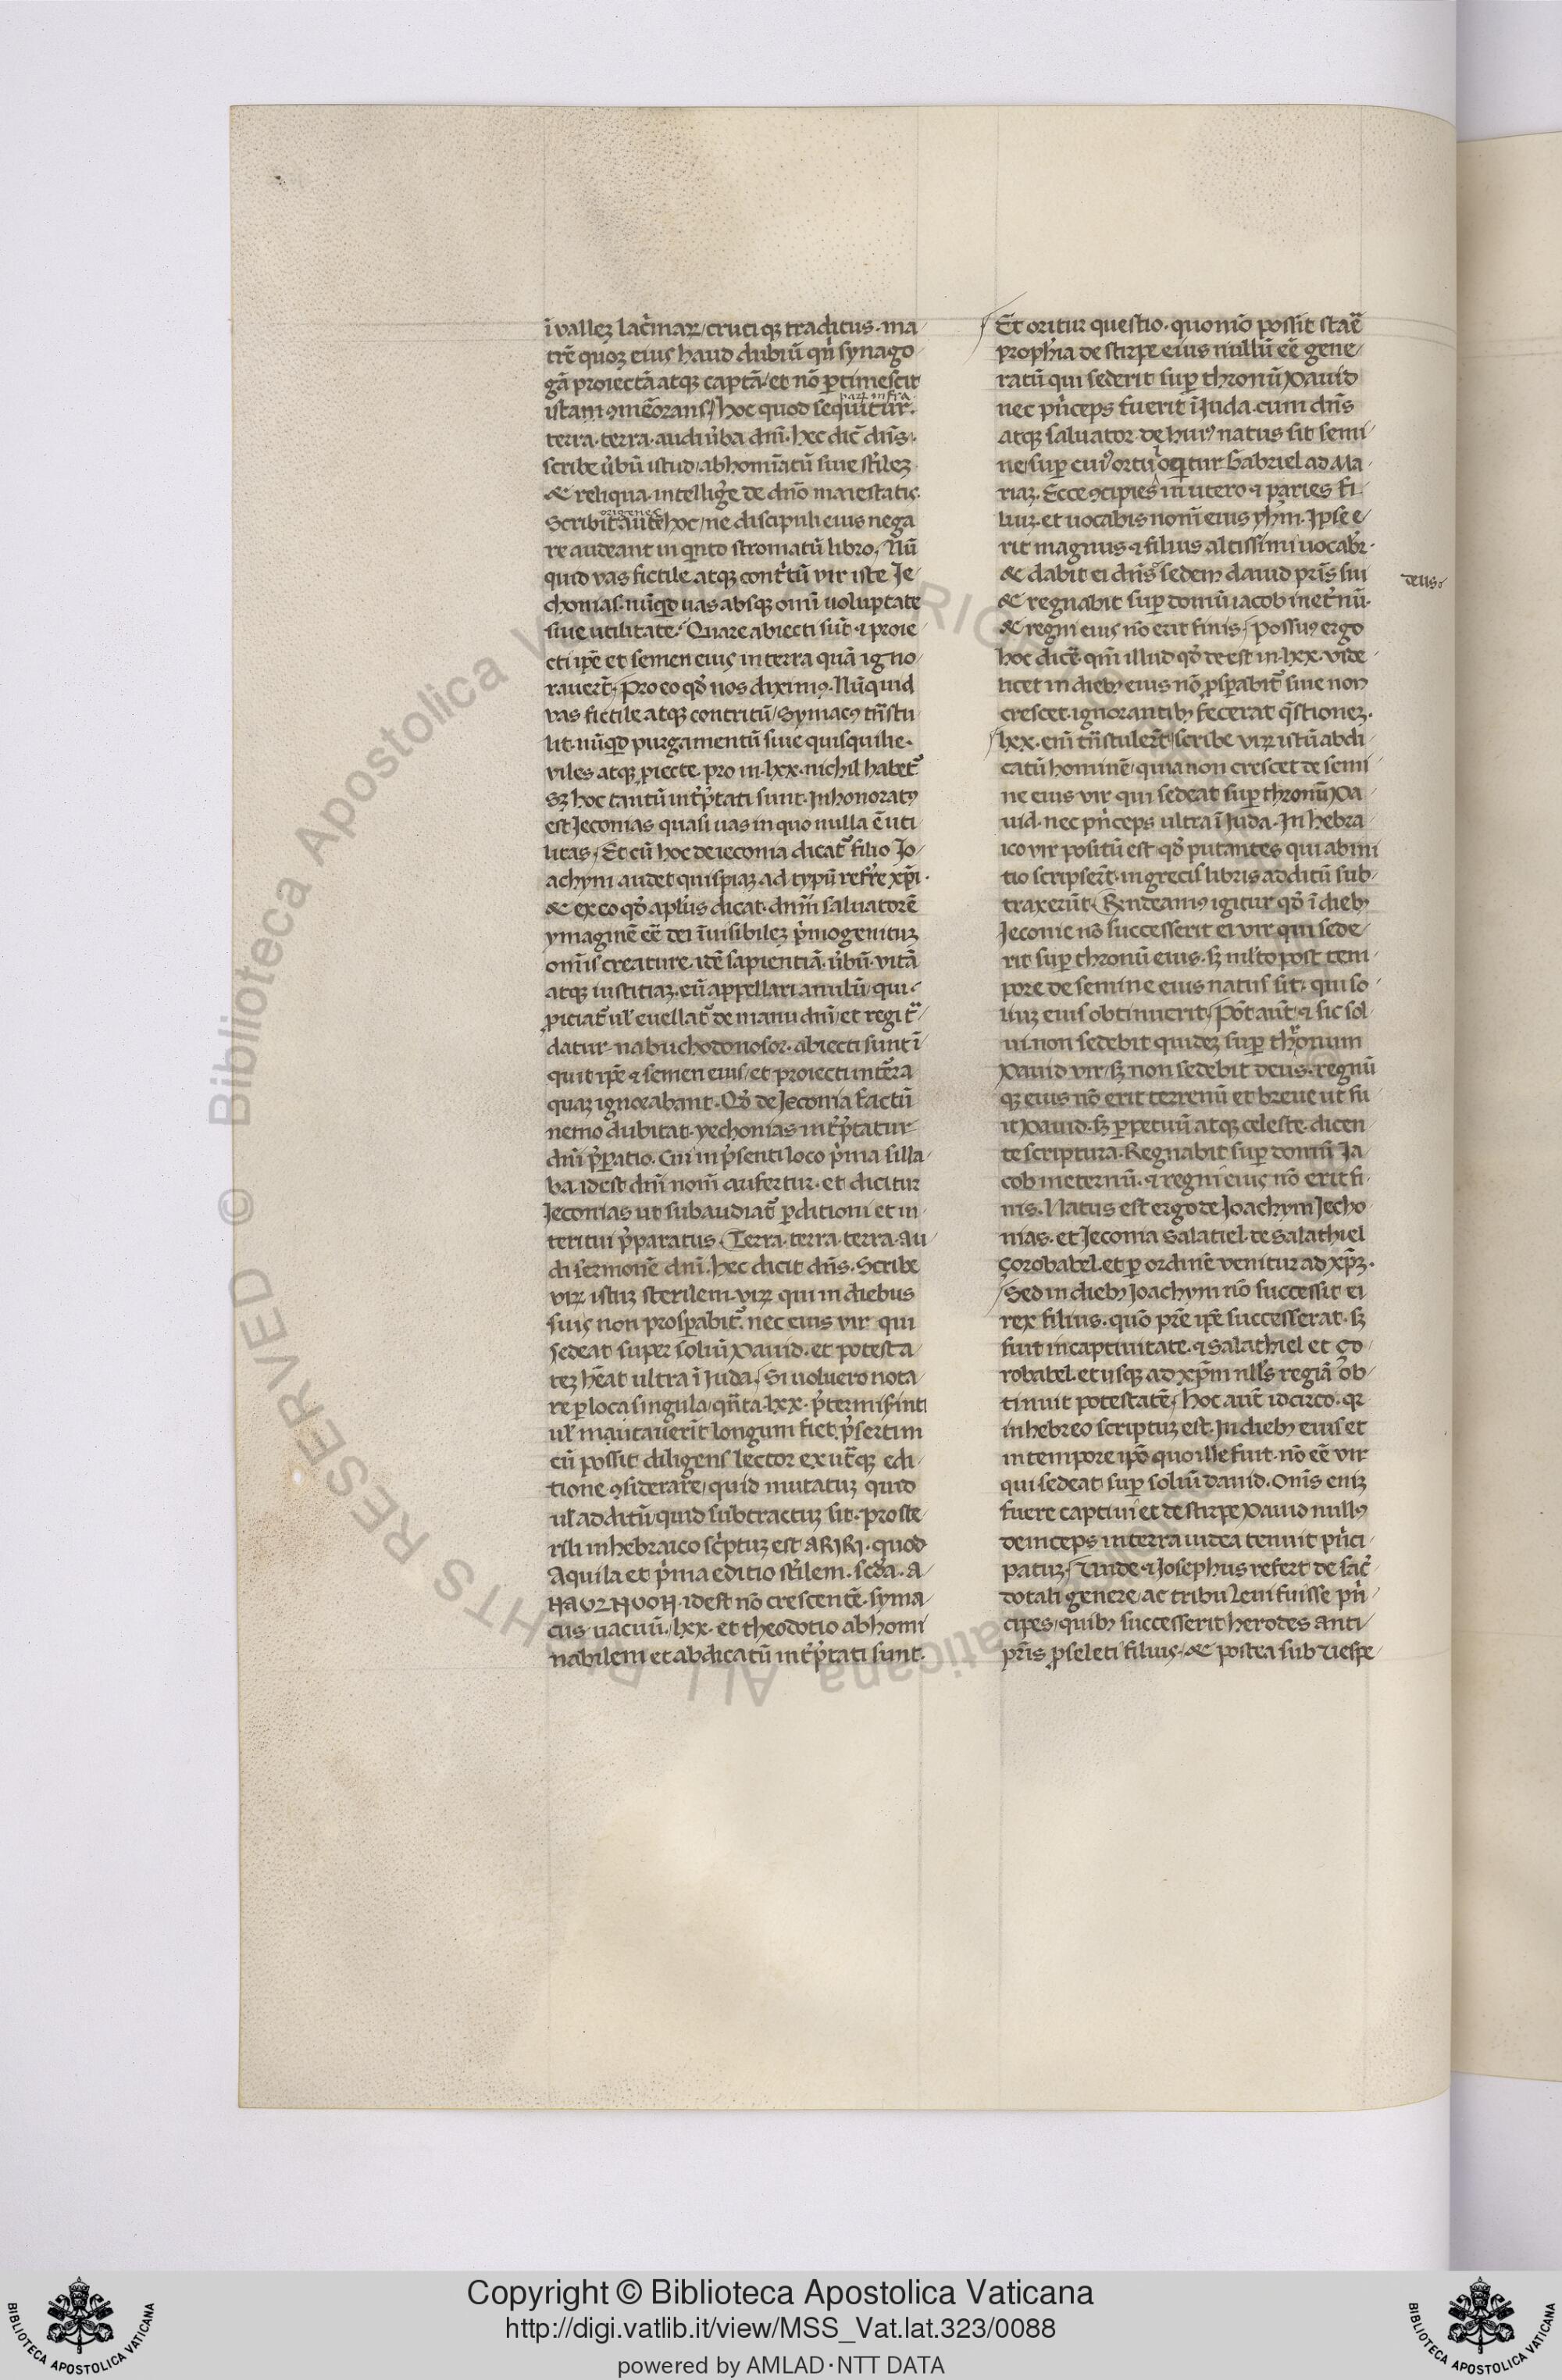 ī vallez lac̄maꝝ/cruci qꝫ traditus. ma
trē quoꝫ eiꝰ haud dubiū qn̄ synago
gā proiectā atqꝫ captā/et nō ꝑtimescit
istam ꝯmēorans/hoc quod sequitur.
parꝫ infra
terra. terra. audi u̇ba dn̄i. hec dic̄ dn̄s.
scribe u̇bū istud/abhominatū siue st̄ilez
& reliqua. intellig̃e de dn̄o maiestatis.
origenes
Scribit autē hoc/ne discipuli eius nega
re audeant in qͥnto stromatū libro/Nū
quid vas fictile atqꝫ cont̄tū vir iste Je
chonias. nūqͥd uas absqꝫ om̄i uoluptate
siue utilitate. Quare abiecti sūt ⁊ proie
cti ip̄e et semen eiꝰ in terra quā igno
rauer̄t/Pro eo qd̓ nos diximꝰ. Nūquid
vas fictile atqꝫ contritū/Symacꝰ tn̄stu
lit. nūqͥd purgamentū siue quisquilie.
viles atqꝫ ꝓiecte. pro in. lxx. nichil habet᷑
sꝫ hoc tantū int̓p̄tati sunt. Inhonoratꝰ
est Jeconias quasi uas in quo nulla ē uti
litas/Et cū hoc de ieconia dicat᷑ filio Jo
achym audet quispiaꝫ ad typū refr̄e xp̄i.
& ex eo qd̓ apl̄us dicat. dn̄m saluatorē
ymaginē eē dei īuisibileꝫ p̄mogenituꝫ
om̄is creature. idē sapientiā. u̇bū. vitā
atqꝫ iustitiaꝫ. eū appellari anulū/qui.
ꝓiciat᷑ ul̓ euellat᷑ de manu dn̄i/et regi t̄
datur. nabuchodonosor. abiecti sunt ī
quit ip̄e ⁊ semen eiuſ/et proiecti in tēra
quaꝫ ignorabant. Qd̓ de Jeconia factū
nemo dubitat. yechonias int̓p̄tatur
dn̄i p̄ꝑatio. Cui in p̄senti loco p̄ma silla
ba. idest dn̄i nom̄ aufertur. et dicitur
Jeconias ut subaudiat᷑ ꝑditioni et in
teritui p̄paratus. Terra. terra. terra. au
di sermonē dn̄i. hec dicit dn̄s. Scribe
virꝫ istuꝫ sterilem. virꝫ qui in diebus
suis non prosꝑabit᷑. nec eius vir qui
sedeat super soliū Dauid. et potesta
teꝫ hēat ultra ī Juda/Si uoluero nota
re ꝑ loca singula/qn̄ta. lxx. p̄termiſint
ul̓ mutauerīt longum fiet. p̄sertim
cū possit diligens lector ex ut̄qꝫ edi
tione ꝯsiderare/quid mutatuꝫ quid
ul̓ additū/quid subtractuꝫ sit. pro ste
rili in hebraico sc̓ptuꝫ est ARIRI. quod
Aquila et p̄ma editio st̄ilem. sed̓a. A
NAUZNUON. idest nō crescentē. syma
cus uacuū. lxx. et theodotio abhomi
nabilem et abdicatū int̓p̄tati sunt.
Et oritur questio. quomō possit staē
proph̓ia de stirpe eius nullū eē gene
ratū qui sederit suꝑ thronū Dauid
nec pn̄ceps fuerit ī Juda. cum dn̄s
atqꝫ saluator. de huiꝰ natus sit semi
ne/suꝑ cuiꝰ ortu loqͥtur Gabriel ad Ma
riaꝫ. Ecce ꝯcipies in utero ⁊ paries fi
liuꝫ. et uocabis nom̄ eius yh̄m. Ipse e
rit magnus ⁊ filius altissimi uocabr̄.
& dabit ei dn̄s sedem dauid pr̄is sui
deus.
& regnabit suꝑ domū iacob in et̄nū.
& regni eiꝰ nō erit finis/Possumꝰ ergo
hoc dicē. qm̄ illud qd̓ deest in. lxx. vide
licet in diebꝰ eius nō ꝓsꝑabit᷑ siue non
crescet. ignorantibꝰ fecerat qͣstionez.
lxx. eni tn̄stuler̄t/scribe virꝫ istū abdi
catū hominē/quia non crescet de semi
ne eius vir qui sedeat suꝑ thronū Da
uid. nec pn̄ceps ultra ī Juda. In hebra
ico vir positū est. qd̓ putantes qui ab ini
tio scripser̄t. in grecis libris additū sub
traxerūt. Rn̄deamꝰ igitur qd̓ ī diebꝰ
Jeconie nō successerit ei vir qui sede
rit suꝑ thronū eius. sꝫ ml̓to post tem
pore de semine eius natus sit. qui so
liuꝫ eius obtinuerit/Pōt aūt ⁊ sic sol
ui. non sedebit quideꝫ suꝑ thronum
Dauid vir/sꝫ non sedebit deus. regnū
qꝫ eius nō erit terrenū et breue ut fu
it Dauid. sꝫ ꝑpetuū atqꝫ celeste. dicen
te scriptura. Regnabit suꝑ domū Ja
cob in eternū. ⁊ regni eiꝰ nō erit fi
nis. Natus est ergo de Joachym Jecho
nias. et Jeconia Salatiel. de Salathiel
Çorobabel. et ꝑ ordinē venitur ad xp̄ꝫ.
Sed in diebꝰ Joachym nō successit ei
rex filius. quō pr̄e ip̄e successerat. sꝫ
fuit in captiuitate. ⁊ Salathiel et Ço
robabel. et usqꝫ ad xp̄m nll̓s regiā ob
tinuit potestatē/hoc aūt idcirco. qꝛ
in hebreo scriptuꝫ est. In diebꝰ eiuſ et
in tempore ip̄o quo ille fuit. nō eē vir
qui sedeat suꝑ soliū dauid. Om̄s eniꝫ
fuere captiui et de stirpe Dauid nullꝰ
deinceps in terra iudea tenuit pn̄ci
patuꝫ/Unde ⁊ Josephus refert de sac̓
dotali genere/ac tribu Leui fuisse pn̄
cipes/quibꝰ successerit herodes Anti
pr̄is ꝓseleti filius. & postea sub Uespe
Copyright © Biblioteca Apostolica Vaticana
http://digi.vatlib.it/view/MSS_Vat.lat.323/0088
powered by AMLAD · NTT DATA
BIBLIOTECA APOSTOLICA VATICANA
BIBLIOTECA APOSTOLICA VATICANA